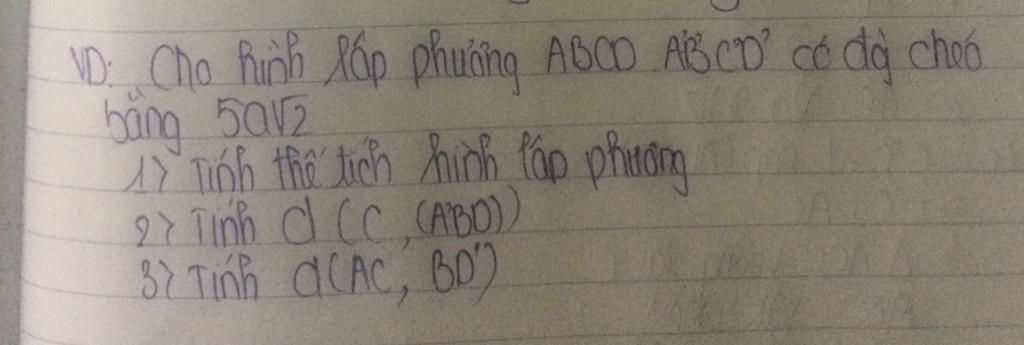 VD: Cho hình lập phương ABCD A'B'C'D' có độ chéo
bằng 5a√2
1) Tính thể tích hình lập phương
2) Tính d(C, (A'BD))
3) Tính d(AC, BD')